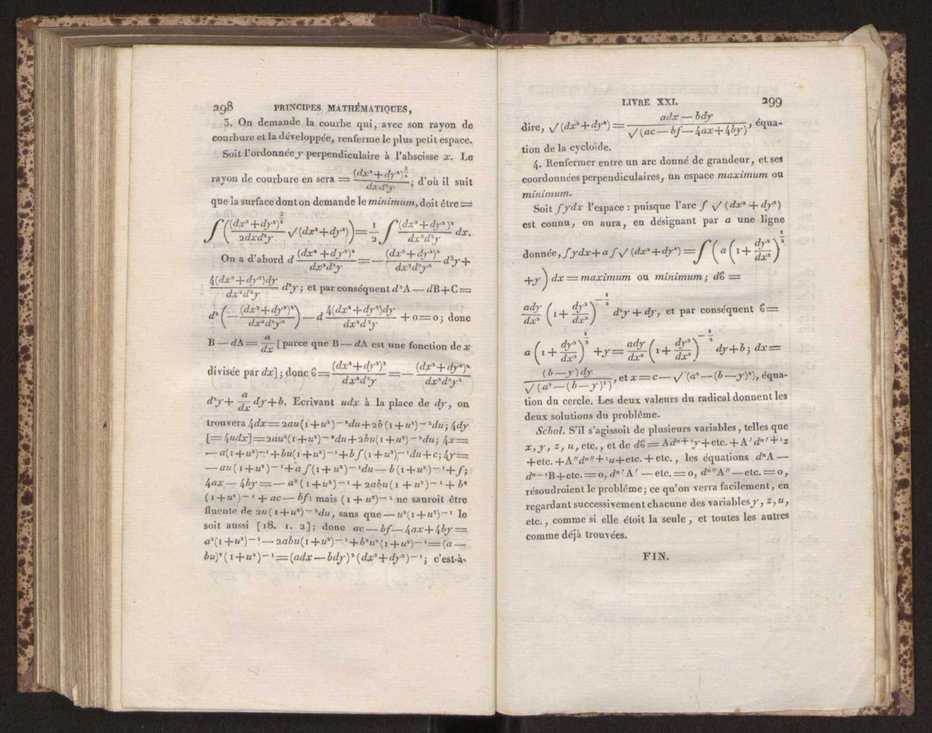 298 PRINCIPES MATHÉMATIQUES,
3. On demande la courbe qui, avec son rayon de
courbure et la développée, renferme le plus petit espace.
Soit l'ordonnée y perpendiculaire à l'abscisse x. Le
rayon de courbure en sera = (dx²+dy²)^(3/2) / dxd²y ; d'où il suit
que la surface dont on demande le minimum, doit être =
∫((dx²+dy²)^(3/2) / 2dxd²y √(dx²+dy²)) = 1/2 ∫ (dx²+dy²)² / dx²d²y dx.
On a d'abord d (dx²+dy²)² / dx²d²y = — (dx²+dy²)² / dx²d²y² d³y+
4(dx²+dy²)dy / dx²d²y d²y ; et par conséquent d²A — dB+C=
d² (— (dx²+dy²)² / dx²d²y²) — d 4(dx²+dy²)dy / dx²d²y + 0=0 ; donc
B — dA = a/dx [parce que B — dA est une fonction de x
divisée par dx] ; donc ϐ = (dx²+dy²)² / dx²d²y = — (dx²+dy²)² / dx²d²y²
d³y+ a/dx dy+b. Ecrivant udx à la place de dy, on
trouvera 4dx=2au(1+u²)⁻²du+2b(1+u²)⁻²du; 4dy
[=4udx]=2au²(1+u²)⁻²du+2bu(1+u²)⁻²du; 4x=
—a(1+u²)⁻¹+bu(1+u²)⁻¹+b∫(1+u²)⁻¹du+c; 4y=
—au(1+u²)⁻¹+a∫(1+u²)⁻¹du—b(1+u²)⁻¹+f;
4ax—4by=—a²(1+u²)⁻¹+2abu(1+u²)⁻¹+b²
(1+u²)⁻¹+ac—bf: mais (1+u²)⁻¹ ne sauroit être
fluente de 2u(1+u²)⁻²du, sans que —u²(1+u²)⁻¹ le
soit aussi [18. 1. 2]; donc ac—bf—4ax+4by=
a²(1+u²)⁻¹—2abu(1+u²)⁻¹+b²u²(1+u²)⁻¹=(a—
bu)²(1+u²)⁻¹=(adx—bdy)²(dx²+dy²)⁻¹; c'est-à-
LIVRE XXI. 299
dire, √(dx²+dy²) = adx—bdy / √(ac—bf—4ax+4by), équa-
tion de la cycloïde.
4. Renfermer entre un arc donné de grandeur, et ses
coordonnées perpendiculaires, un espace maximum ou
minimum.
Soit ∫ydx l'espace : puisque l'arc ∫√(dx²+dy²)
est connu, on aura, en désignant par a une ligne
donnée, ∫ydx+a∫√(dx²+dy²) = ∫(a(1+ dy²/dx²)^(1/2)
+y) dx = maximum ou minimum ; dϐ =
ady/dx² (1+ dy²/dx²)^(-1/2) d²y+dy, et par conséquent ϐ=
a(1+ dy²/dx²)^(1/2) +y= ady/dx² (1+ dy²/dx²)^(-1/2) dy+b ; dx=
(b—y)dy / √(a²—(b—y)²), et x=c—√(a²—(b—y)²), équa-
tion du cercle. Les deux valeurs du radical donnent les
deux solutions du problême.
Schol. S'il s'agissoit de plusieurs variables, telles que
x, y, z, u, etc., et de dϐ=Adⁿ⁺¹y+etc.+A′dⁿ′⁺¹z
+etc.+A″dⁿ″⁺¹u+etc.+etc., les équations dⁿA—
dⁿ⁻¹B+etc.=0, dⁿ′A′—etc.=0, dⁿ″A″—etc.=0,
résoudroient le problême ; ce qu'on verra facilement, en
regardant successivement chacune des variables y, z, u,
etc., comme si elle étoit la seule, et toutes les autres
comme déjà trouvées.
FIN.